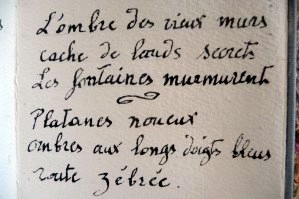 L'ombre des vieux murs
cache de lourds secrets
Les fontaines murmurent
Platanes noueux
ombres aux longs doigts bleus
route zébrée.